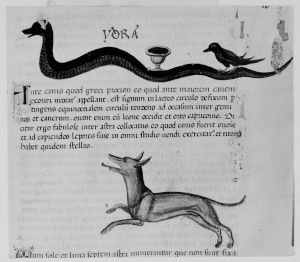 YDRA
Ante canis quod greci procion eo quod ante maiorem canem
exoriri notat appellant. est signum in lacteo circulo defixum p
tingens equinoctialem circuli tendens ad occasum inter gemi
nos et cancrum. oritur enim cum leone occidit et orto capricorno. Di
citur ergo fabulose inter astra collocatus eo quod canis fuerit
et ad capiendos lepores sine in omni studio exercitat
habet quidem stellas.
sole et luna septem astra numerantur que non sunt fixa